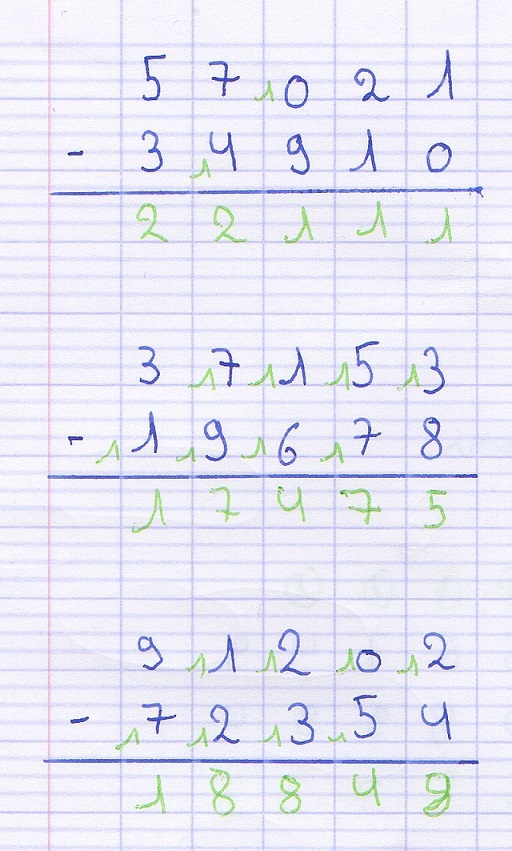 5 7 10 2 1
- 3 14 9 1 0
2 2 1 1 1
3 17 11 15 13
- 11 19 16 17 8
1 7 4 7 5
9 11 12 10 12
- 17 12 13 15 4
1 8 8 4 9